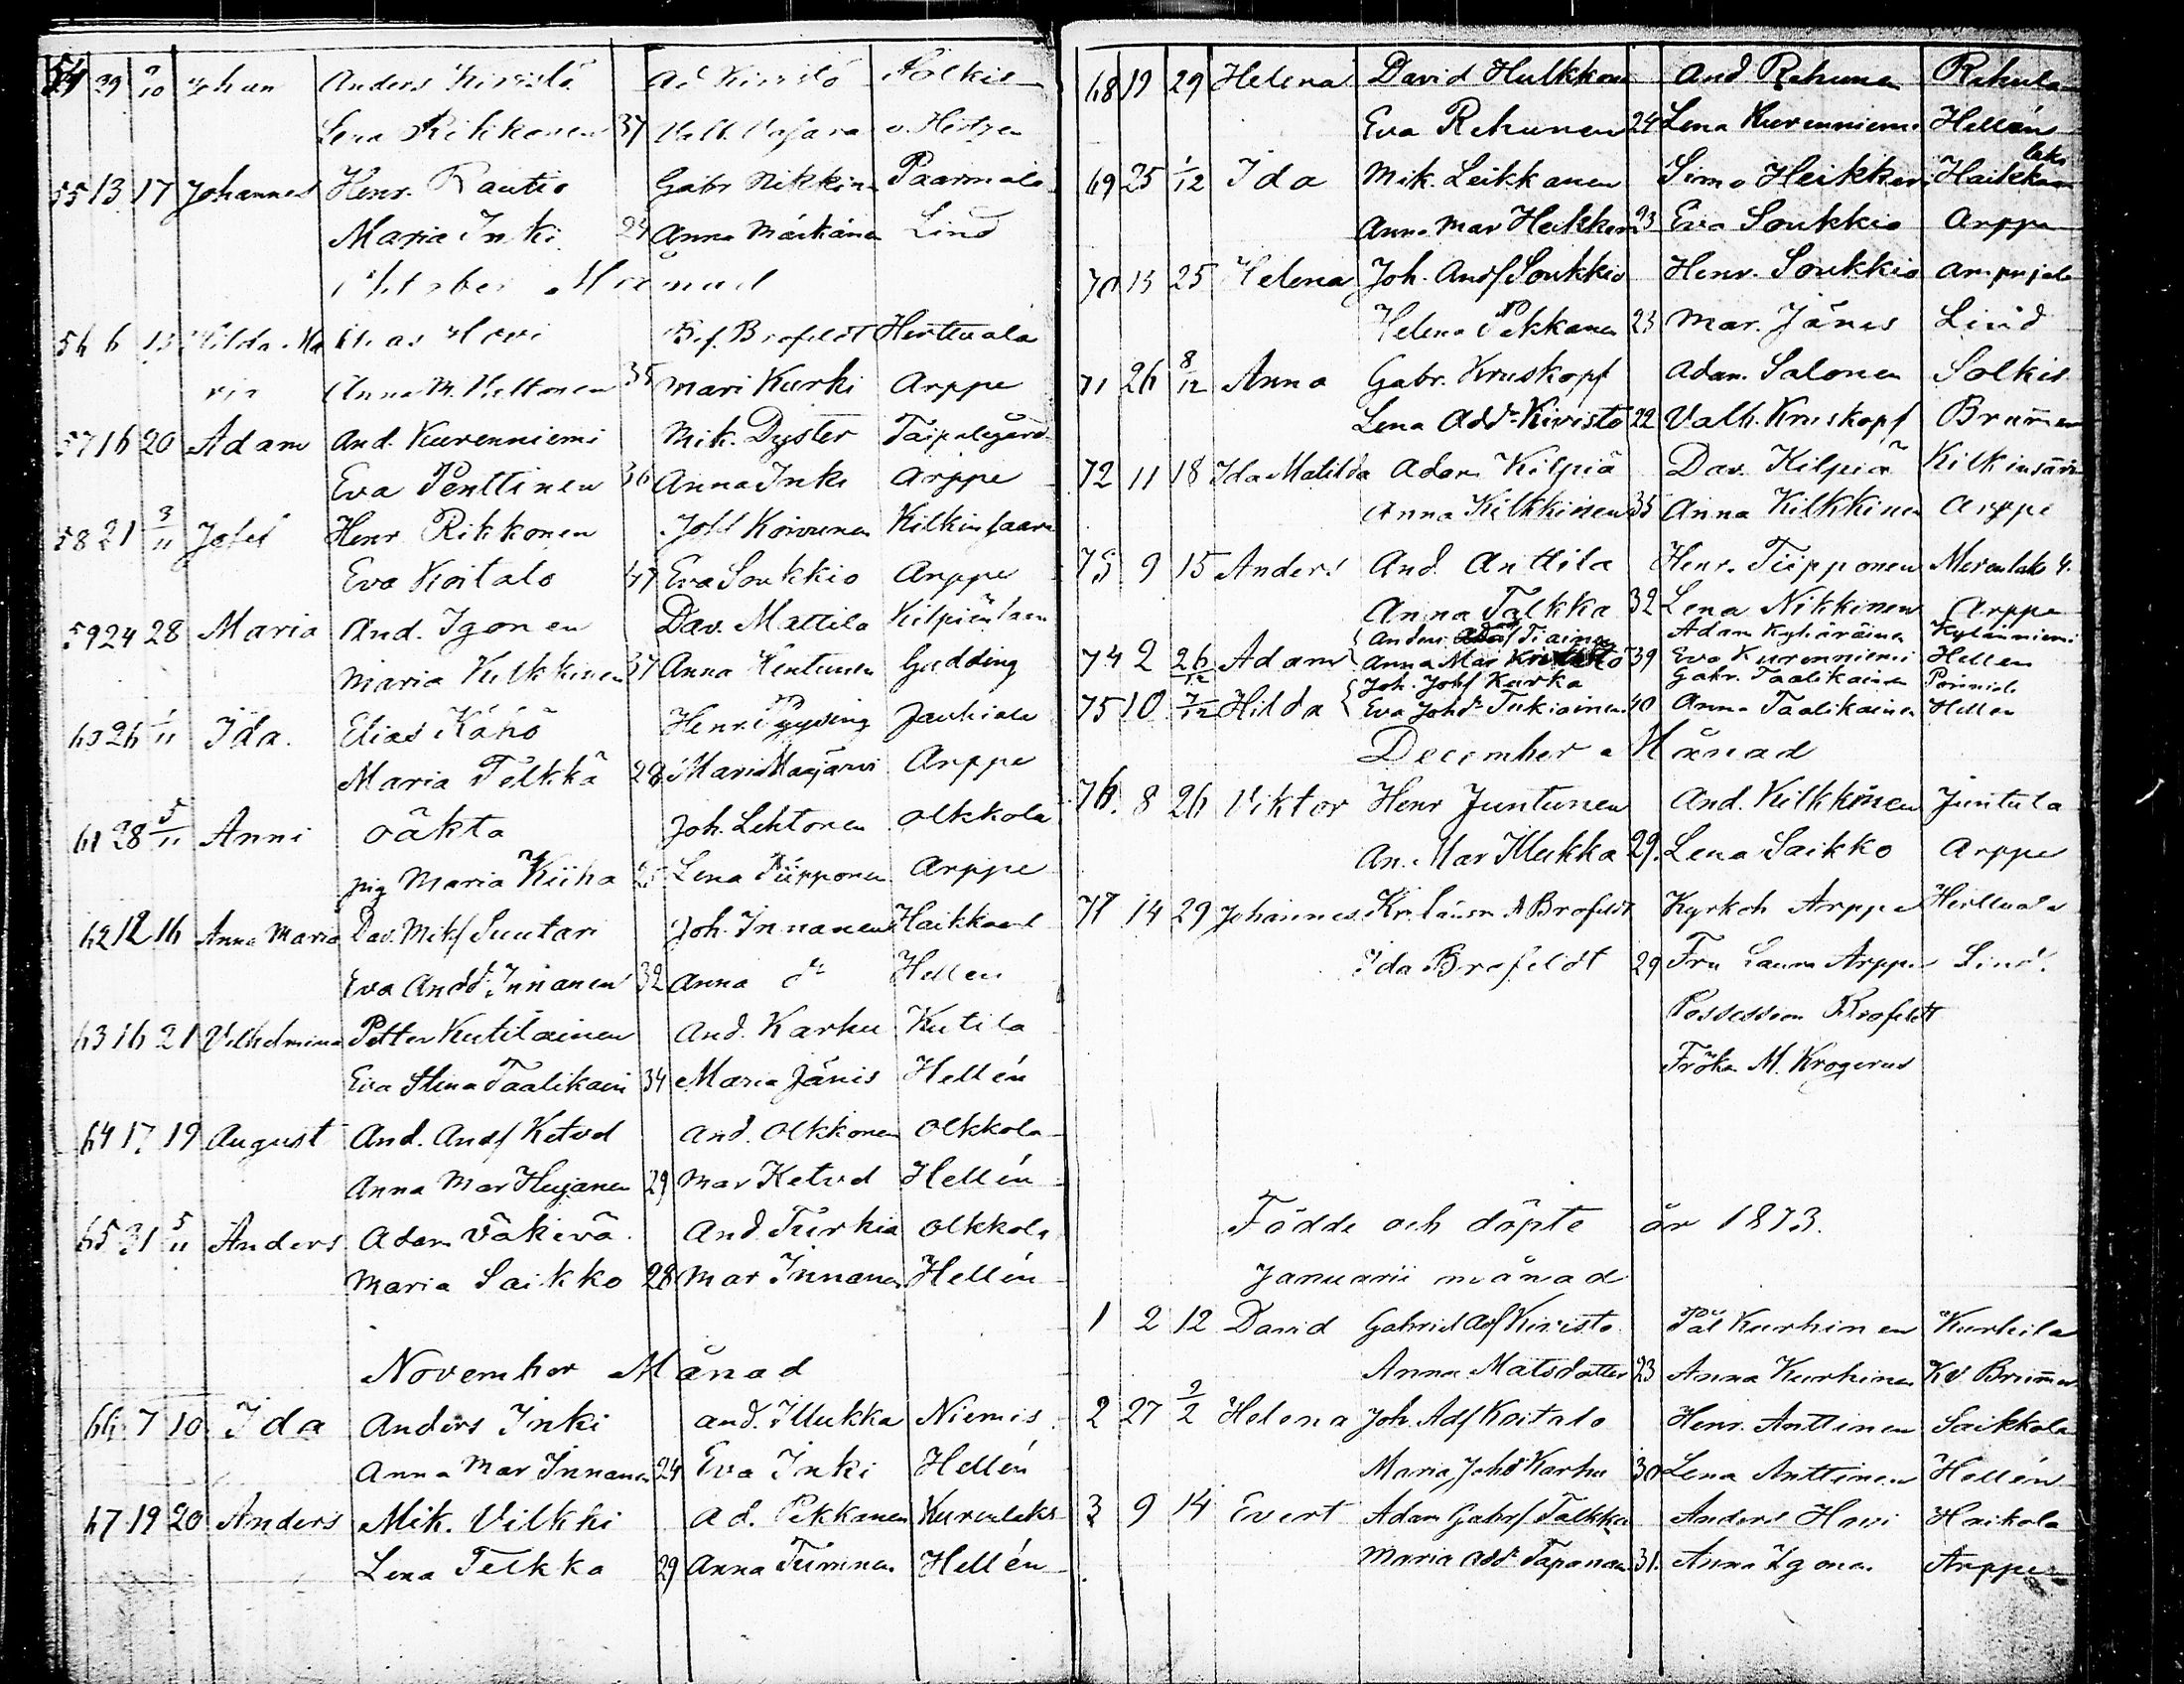 54 29 9/10 Johan Anders Kivistö Ad Kivistö Solkis
Lena Rikkonen 37 v. Hertzen
55 13 17 Johannes Henr. Rautio Gabr Nikkin Paarmala
Maria Inki 24 Anna Märkänen Lind
Oktober Månad
56 6 13 Hilda Ma Elias Hovi Brofeldt Hertteuala
ria Anna M. Kelttonen 35 Mari Kurki Arppe
57 16 20 Adam And. Kurenniemi Mik. Dyster Taipalegård
Eva Penttinen 36 Anna Inki Arppe
58 21 3/11 Josef Henr Rikkonen Josf Koivunen Kilkinsaari
Eva Koitalo 47 Eva Soukkio Arppe
59 24 28 Maria And. Igonen Dav. Mattila
Maria Kilkkinen 37 Anna Kentunen Gadding
60 26 1/11 Ida. Elias Kähö Henr. Pyysing Jauhiala
Maria Telkkä 28 Maria Maajärvi Arppe
61 28 5/11 Anni oäkta Joh. Lehtonen Olkkola
pig Maria Kiiha 25 Lena Tiipponen Arppe
62 12 16 Anna Maria Dav. Mikf Suutari Joh. Innanen Haikkaal
Eva Andd: Innanen 32 Anna do Hellen
63 16 21 Vilhelmina Petter Kutilainen And. Karhu Kutila
Eva Stina Taalikain 34 Maria Jänis Hellén
64 17 19 August And. Andf Ketvel And. Olkkonen Olkkola
Anna Mar Hujanen 29 Mar Ketvel Hellén
65 31 5/11 Anders Adam Väkevä. And Turkia Olkkola
Maria Saikko 28 Mar Innanen Hellén
November Månad
66 7 10 Ida Anders Inki And. Illukka Niemis
Anna Mar Innanen 24 Eva Inki Hellén
67 19 20 Anders Mik. Vilkki Ad. Pekkanen Kurenlaks
Lena Telkka 29 Anna Timinen Hellén
68 19 29 Helena David Hulkkon And Rahunen Rahula
Eva Rahunen 24 Lena Kurenniemi Hellén
69 25 1/12 Ida Mik. Leikkanen Simo Heikken Haikkaan
laks
Anna Mar Heikken 23 Eva Soukkio Arppe
70 13 25 Helena Joh. Andf Soukkio Henr. Soukkio Ampujala
Helena Pekkanen 23 Mar. Jänes Lind
71 26 8/12 Anna Gabr. Kruskopf Adam. Salonen Solkis
Lena Add: Kivistö 22 Valb. Kruskopf Brummer
72 11 18 Ida Matilda Adam Kilpiä Dav. Kilpiä Kilkinsaari
Anna Kilkkinen 35 Anna Kilkkinen Arppe
73 9 15 Anders And. Anttila Henr. Tiipponen Merenlaks 4.
Anna Talkka 32 Lena Nikkinen Arppe
Anders Tiainen Adam Kyhäräinen Kyläniemi
74 2 26/12 Adam Anna Mar 39 Eva Kurenniemi Hellen
Joh. Johf Karka Gabr. Taalikainen
75 10 7/12 Hilda Eva Johd: Tukiainen 40 Anna Taalikainen Hellen
December Månad
76. 8 26 Viktor Henr Juntunen And. Kilkkinen Juntula
An. Mar Illukka 29. Lena Saikko Arppe
77 14 29 Johannes. Kr. länsm A Brofeldt Kyrkoh Arppe Hertteuala
Ida Brofeldt 29 Fru Laura Arppe Lind.
Possession Brofeldt
Fröken M. Krogerus
Födde och döpte år 1873.
Januarii månad
1 2 12 David Gabriel Adf Kivistö Pål Kurhinen Kurhila
Anna Matsdotter 23 Anna Kurhinen Kd Brummer
2 27 9/2 Helena Joh. Adf Koitalo Henr. Anttinen Saikkola
Maria Johd Karhu 30 Lena Anttinen Hellén
3 9 14 Evert Adam Gabrf Talkka Anders Hovi Haikola
Maria Add: Taponen 31. Anna Igonen Arppe